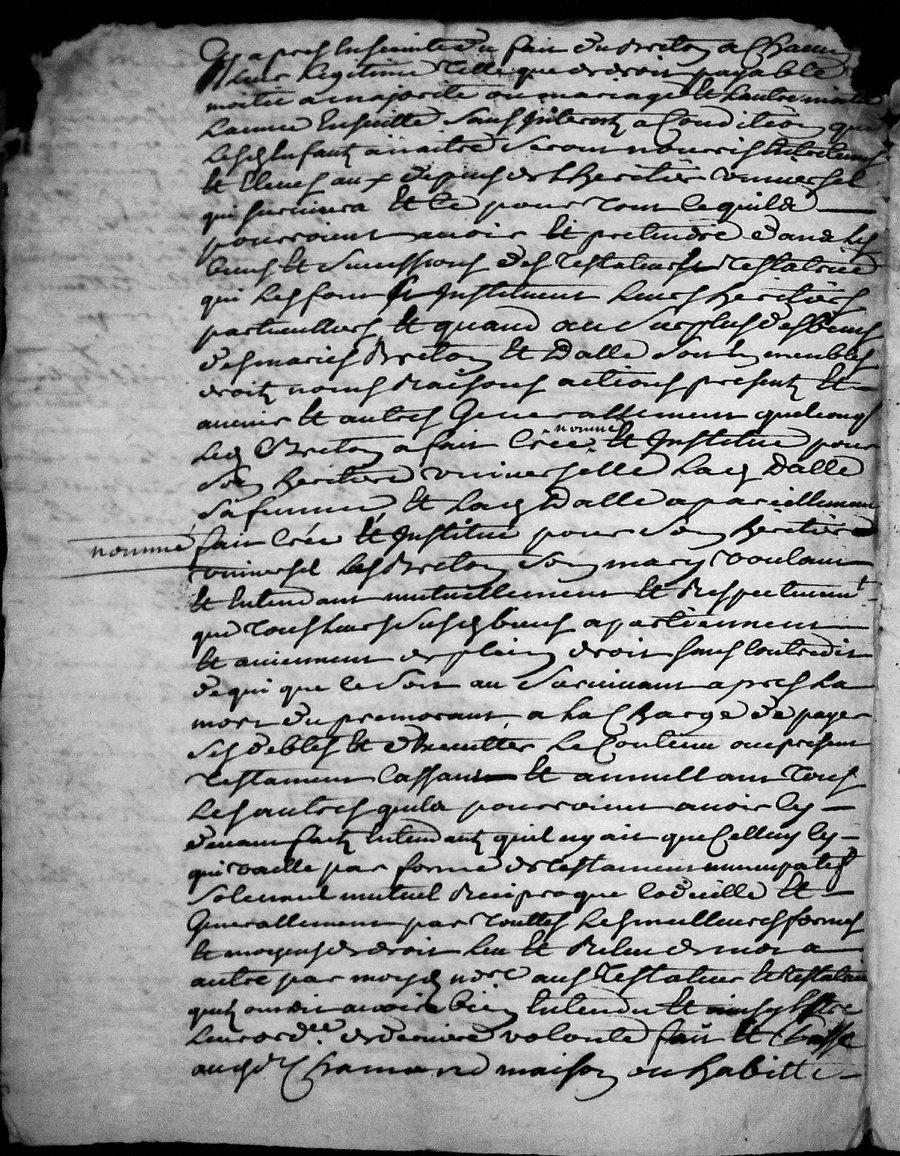 apres enseinte du fait du Breton a Chacun
leur legitime telle que de droit payable
moitie a majorite ou mariage et l'autre moitie
l'annee ensuitte sans interest a Condition que
lesd enfantz a naitre seront nourris entretenus
et eleves aux depens de l heritier universel
qui survivra et ce pour tout ce quilz
pourroient avoir et pretendre dans les
biens et successions desd testateur et testatrice
qui les font et Instituent leurs heritiers
particulliers, et quand au surplus des biens
desd maries Breton et Dalle soit en meubles
droitz noms Raisons actions presentz et
avenir et autres Generallement quelconqs
led Breton a fait Créé nommé et Institue pour
son heritiere universelle lad Dalle
sa femme, et lad Dalle a pareillement
nommé fait Créé et Institué pour son heritier
universel led Breton son mary voulant
et entendant mutuellement et Respectivemt
que tous leurs susd biens apartiennent
et aviennent de plein droit sans contredit
de qui que ce soit au survivant apres la
mort du premorant, a la Charge de payer
ses debtes et d'executter le Contenu au present
testament Cassant et annullant tous
les autres quilz pourroient avoir cy
devant faitz entendantz quil ny ait que Celluy cy
qui vaille par forme de testament nuncupatif
solemnel mutuel Reciproque Codicille et
Generallement par touttes les meilleures formes
et moyens de droit leu et Releu de mot a
autre par moyd nore aux testateur et testatrice
quilz ont dit avoir bien entendu et ainsy Estre
leur ordce de derniere volonté fait et Passé
aud Chamond maison ou habitte